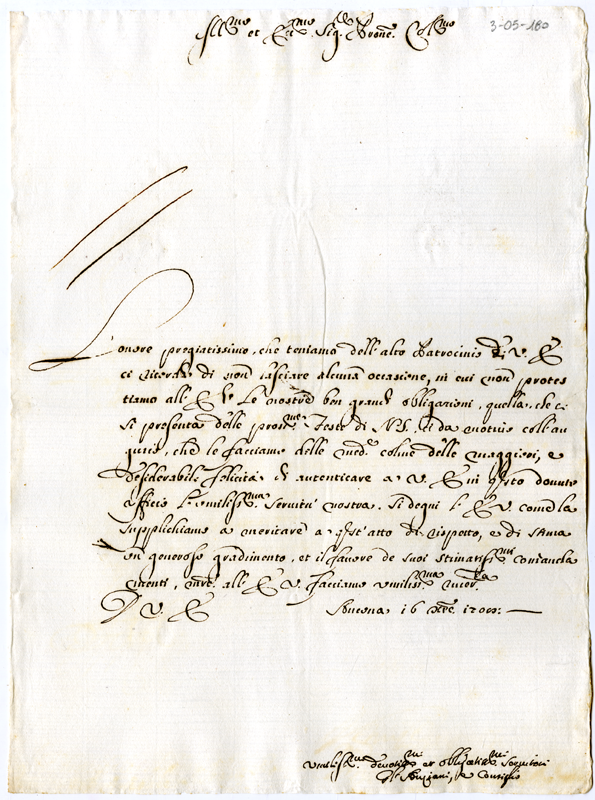 Ill.mo et Ecc.mo Sig.r Prone Coll.mo
3-05-180
L'onore pregiatissimo, che teniamo dell'alto Patrocinio di V. E.
ci ricerca di non lasciare alcuna occasione, in cui non protes
tiamo all'E. V. le nostre ben grandi obligazioni, quella, che ci
si presenta delle pross.me Feste di N.S. ci da motivo coll'au
gurio, che le facciamo delle med.e colme delle maggiori, e
desiderabili felicità di autenticare a V. E. in questo dovuto
officio l'umiliss.ma servitù nostra. Si degni l'E. V. come la
supplichiamo a mericare a quest'atto di rispetto, e di stima
un generoso gradimento, et il favore de suoi stimatiss.mi comanda
menti, mentre all'E. V. facciamo umiliss.ma river.za
D. V. E. 16 Xbre
Umiliss.mi devotiss.mi et obligatiss.mi servitori
Gl'Anziani, e Consiglio